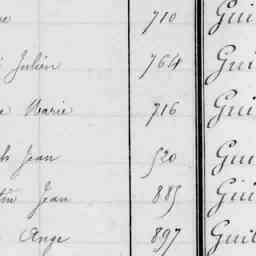 e 710 Gui
Julien 764 Gui
e Marie 716 Gui
h Jean 520 Gui
tin Jean 885 Gui
Ange 897 Guil